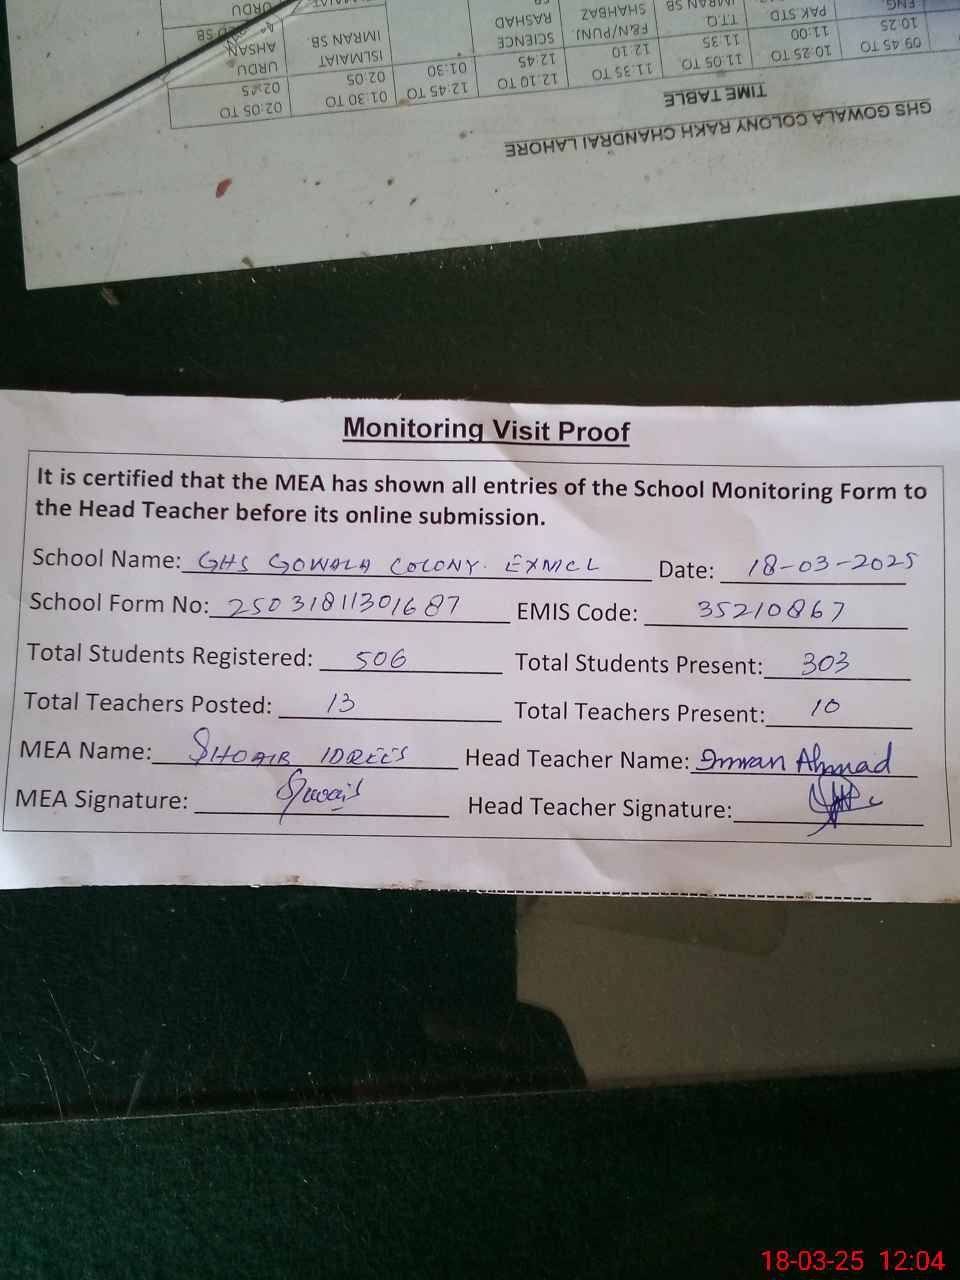 GHS GOWALA COLONY RAKH CHANDRAI LAHORE
TIME TABLE
09 45 TO 10 25 10 25 TO 11:00 11.05 TO 11.35 11.35 TO 12.10 12.10 TO 12.45 12:45 TO 01:30 01:30 TO 02:05 02:05 TO
ENG. PAK STD T.T.Q. IMRAN SB F&N/PUNJ. SHAHBAZ SCIENCE RASHAD SB ISLMAIAT IMRAN SB. URDU AHSAN
URDU
Monitoring Visit Proof
It is certified that the MEA has shown all entries of the School Monitoring Form to
the Head Teacher before its online submission.
School Name: GHS GOWALA COLONY. EXMCL Date: 18-03-2025
School Form No: 25031811301687 EMIS Code: 35210867
Total Students Registered: 506 Total Students Present: 303
Total Teachers Posted: 13 Total Teachers Present: 10
MEA Name: SHOAIB IDREES Head Teacher Name: Imran Ahmad
MEA Signature: Head Teacher Signature:
18-03-25 12:04